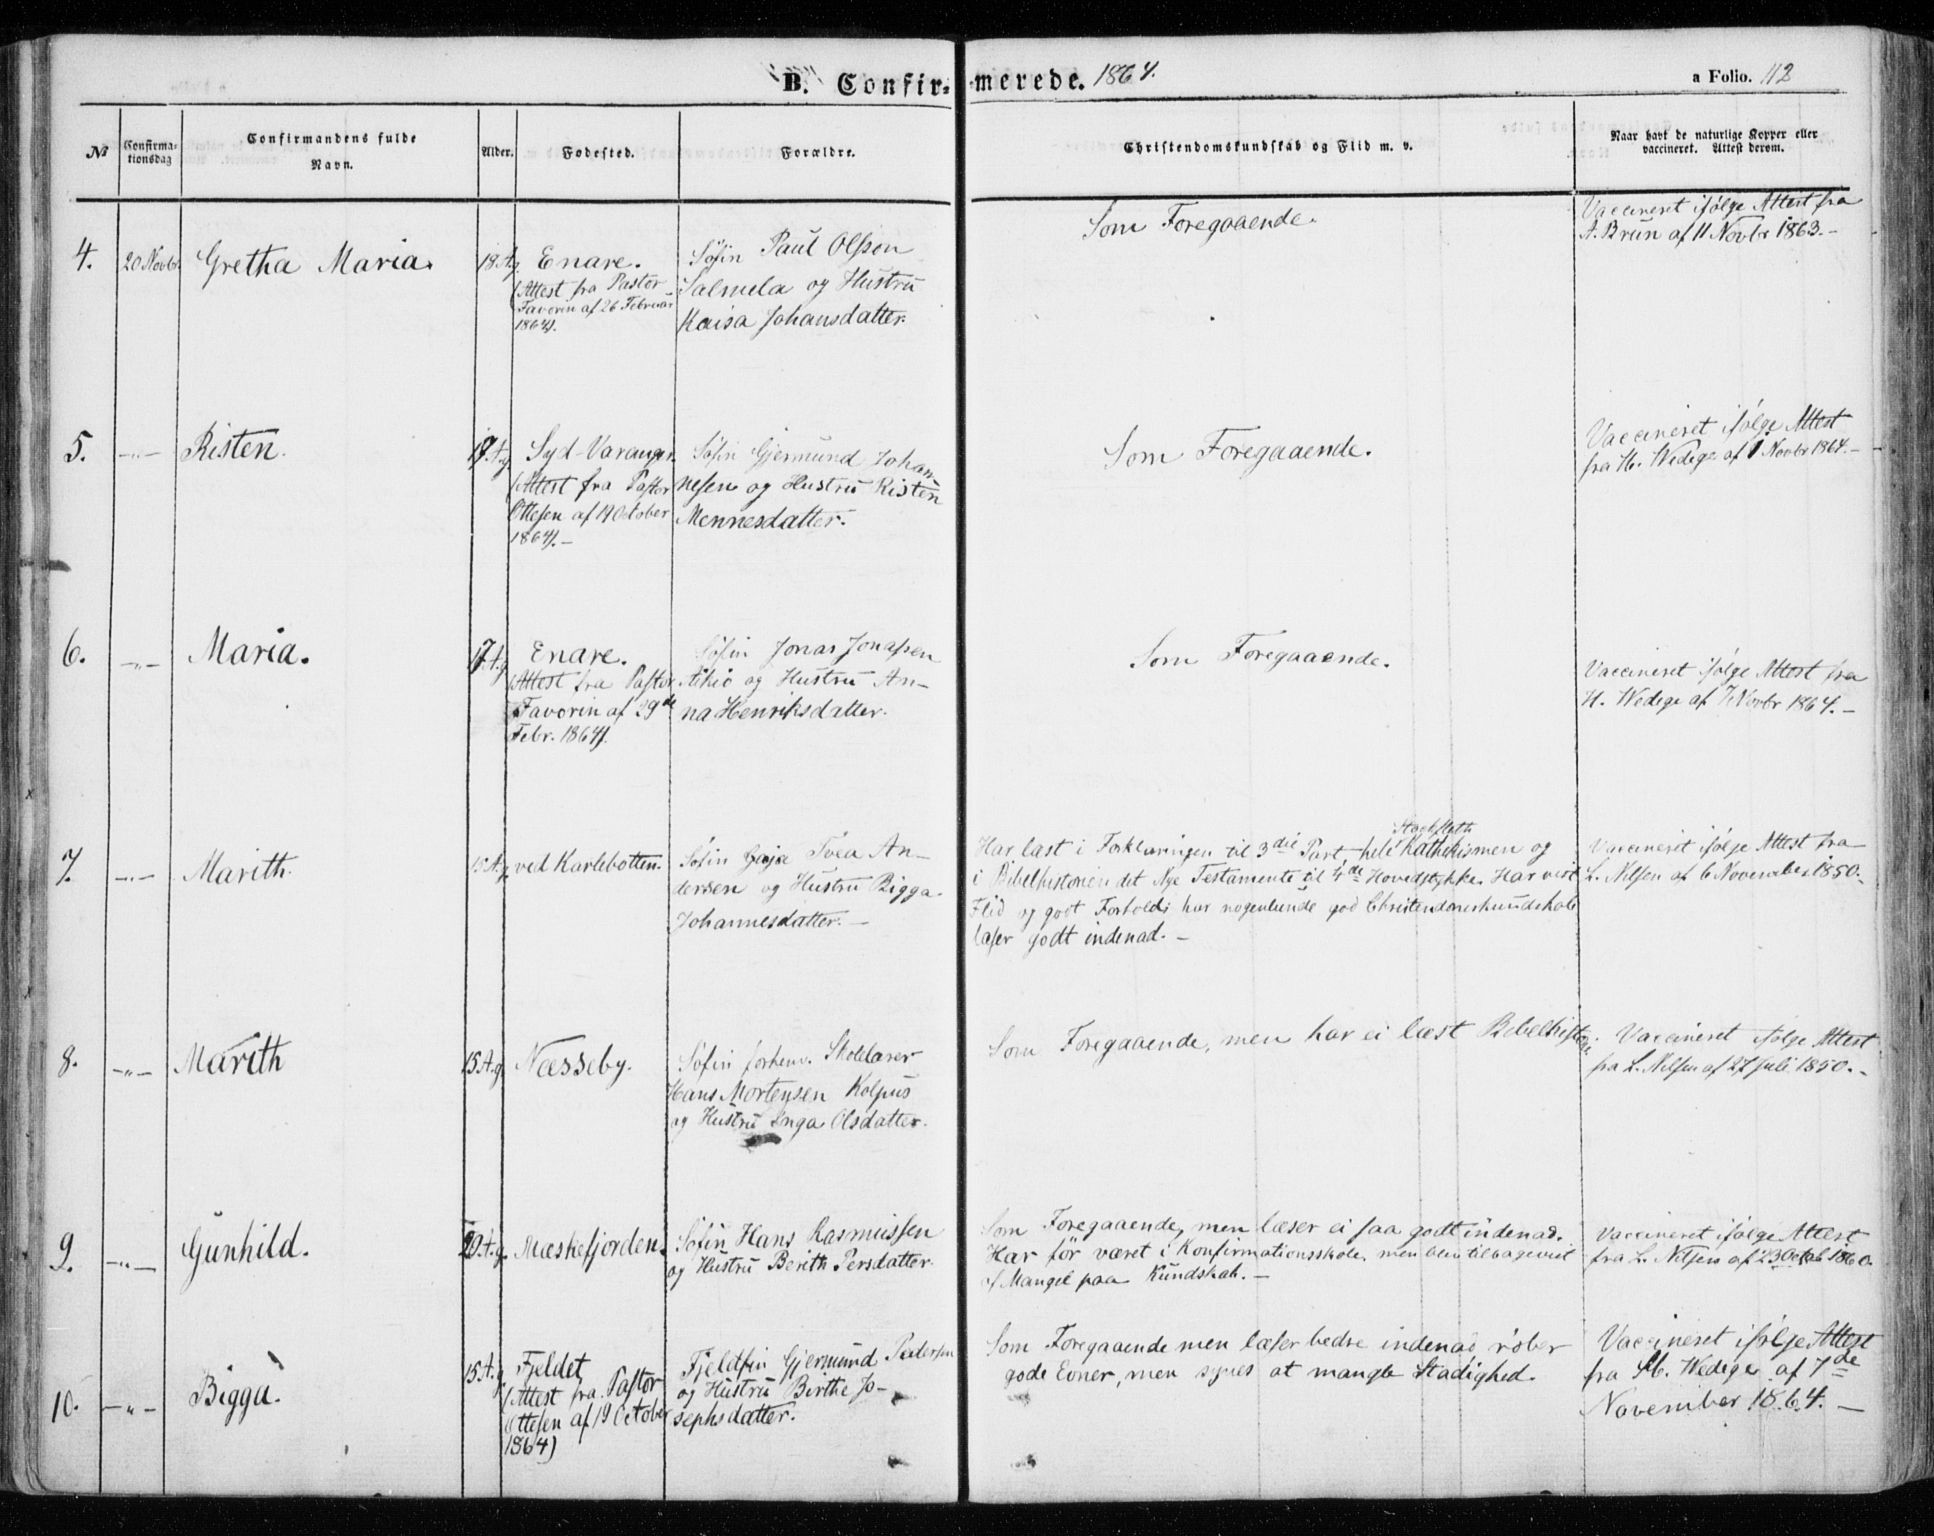 B. Confirmerede. 1864.
a Folio. 112
No
Confirmationsdag
Confirmandens fulde Navn.
Alder.
Fødested.
Forældre.
Christendomskundskab og Flid m. v.
Naar havt de naturlige Kopper eller vaccineret. Attest derom.
4.
20 Novbr
Gretha Maria.
18 A.g
Enare.
(Attest fra Pastor
Favorin af 26 Februar
1864).
Søfin Paul Olsson
Salmela og Hustru
Kaisa Johansdatter.
Som Foregaaende.
Vaccineret ifølge Attest fra
A. Brun af 11 Novbr 1863.-
5.
-"-
Risten.
A.g
Syd-Varanger.
(Attest fra Pastor
Ottesen af 19 October
1864).-
Søfin Gjermund Johan-
nesen og Hustru Risten
Mennesdatter.
Som Foregaaende.
Vaccineret ifølge Attest
fra H. Wedege af Novbr 1864.-
6.
-"-
Maria.
17 A.g
Enare.
(Attest fra Pastor
Favorin af 29de
Febr. 1864).
Søfin Jonas Jonassen
Aikio og Hustru An-
na Henriksdatter.
Som Foregaaende.
Vaccineret ifølge Attest fra
H. Wedege af 7 Novbr 1864.-
7.
-"-
Marith.
15 A.g
ved Karlebotten.
Søfin An-
dersen og Hustru Bigga
Johannesdatter.-
Stockfleths
Har læst i Forklaringen til 3die Part hele Kathekismen og
i Bibelhistorien det Nye Testamente til 4de Hovedstykke. Har vist
Flid og godt Forhold; har nogenlunde god Christendomskundskab
læser godt indenad.-
Vaccineret ifølge Attest fra
L. Nilsen af 6 November 1850.
8.
-"-
Marith
15 A.g
Næsseby.
Søfin forhenv. Skolelærer
Hans Mortensen Kolpus
og Hustru Inga Olsdatter.
Som Foregaaende, men har ei læst Bibelhistorie.
Vaccineret ifølge Attest
fra L. Nilsen af 27 Juli 1850.-
9.
-"-
Gunhild.
20 A.g
Mæskefjorden.
Søfin Hans Rasmussen
og Hustru Berith Persdatter.
Som Foregaaende, men læser ei saa godt indenad.
Har før været i Konfirmationsskole, men blev tilbagevist
af Mangel paa Kundskab.-
Vaccineret ifølge Attest
fra L. Nilsen af 23 1860.
10.
-"-
Bigga.
15 A.g
Fjeldet,
(Attest fra Pastor
Ottesen af 19 October
1864)
Fjeldfin Gjermund Pedersen
og Hustru Birthe Jo-
sephsdatter.
Som Foregaaende men læser bedre indenad røber
gode Evner, men synes at mangle Stadighed.
Vaccineret ifølge Attest
fra H. Wedege af 7de
November 1864.-